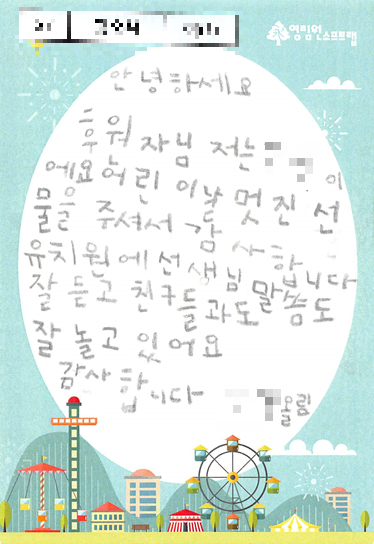 영림원소프트랩
안녕하세요
후원자님 저는
에요 어린이날 멋진 선
물을 주셔서 감사합니다
유치원에 선생님 말씀도
잘 듣고 친구들과도
잘 놀고 있어요
감사합니다
올림